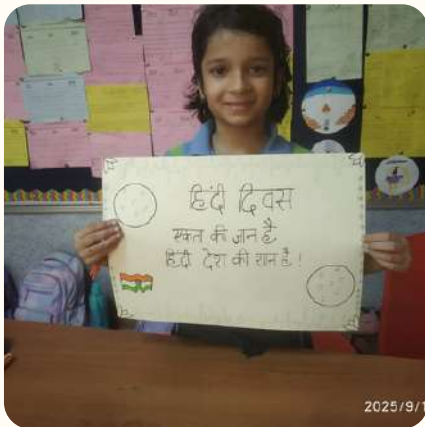 हिंदी दिवस
एकता की जान है
हिंदी देश की शान है!
2025/9/1